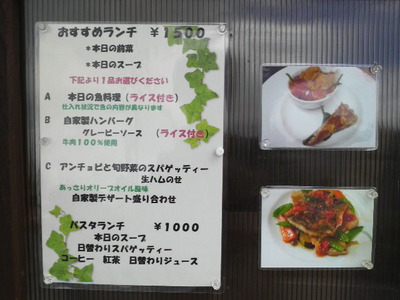 おすすめランチ ￥1500
＊本日の前菜
＊本日のスープ
下記より１品お選びください
A 本日の魚料理（ライス付き）
仕入れ状況で魚の内容が異なります
B 自家製ハンバーグ
グレービーソース （ライス付き）
牛肉１００％使用
C アンチョビと旬野菜のスパゲッティー
生ハムのせ
あっさりオリーブオイル風味
自家製デザート盛り合わせ
パスタランチ ￥1000
本日のスープ
日替わりスパゲッティー
コーヒー 紅茶 日替わりジュース